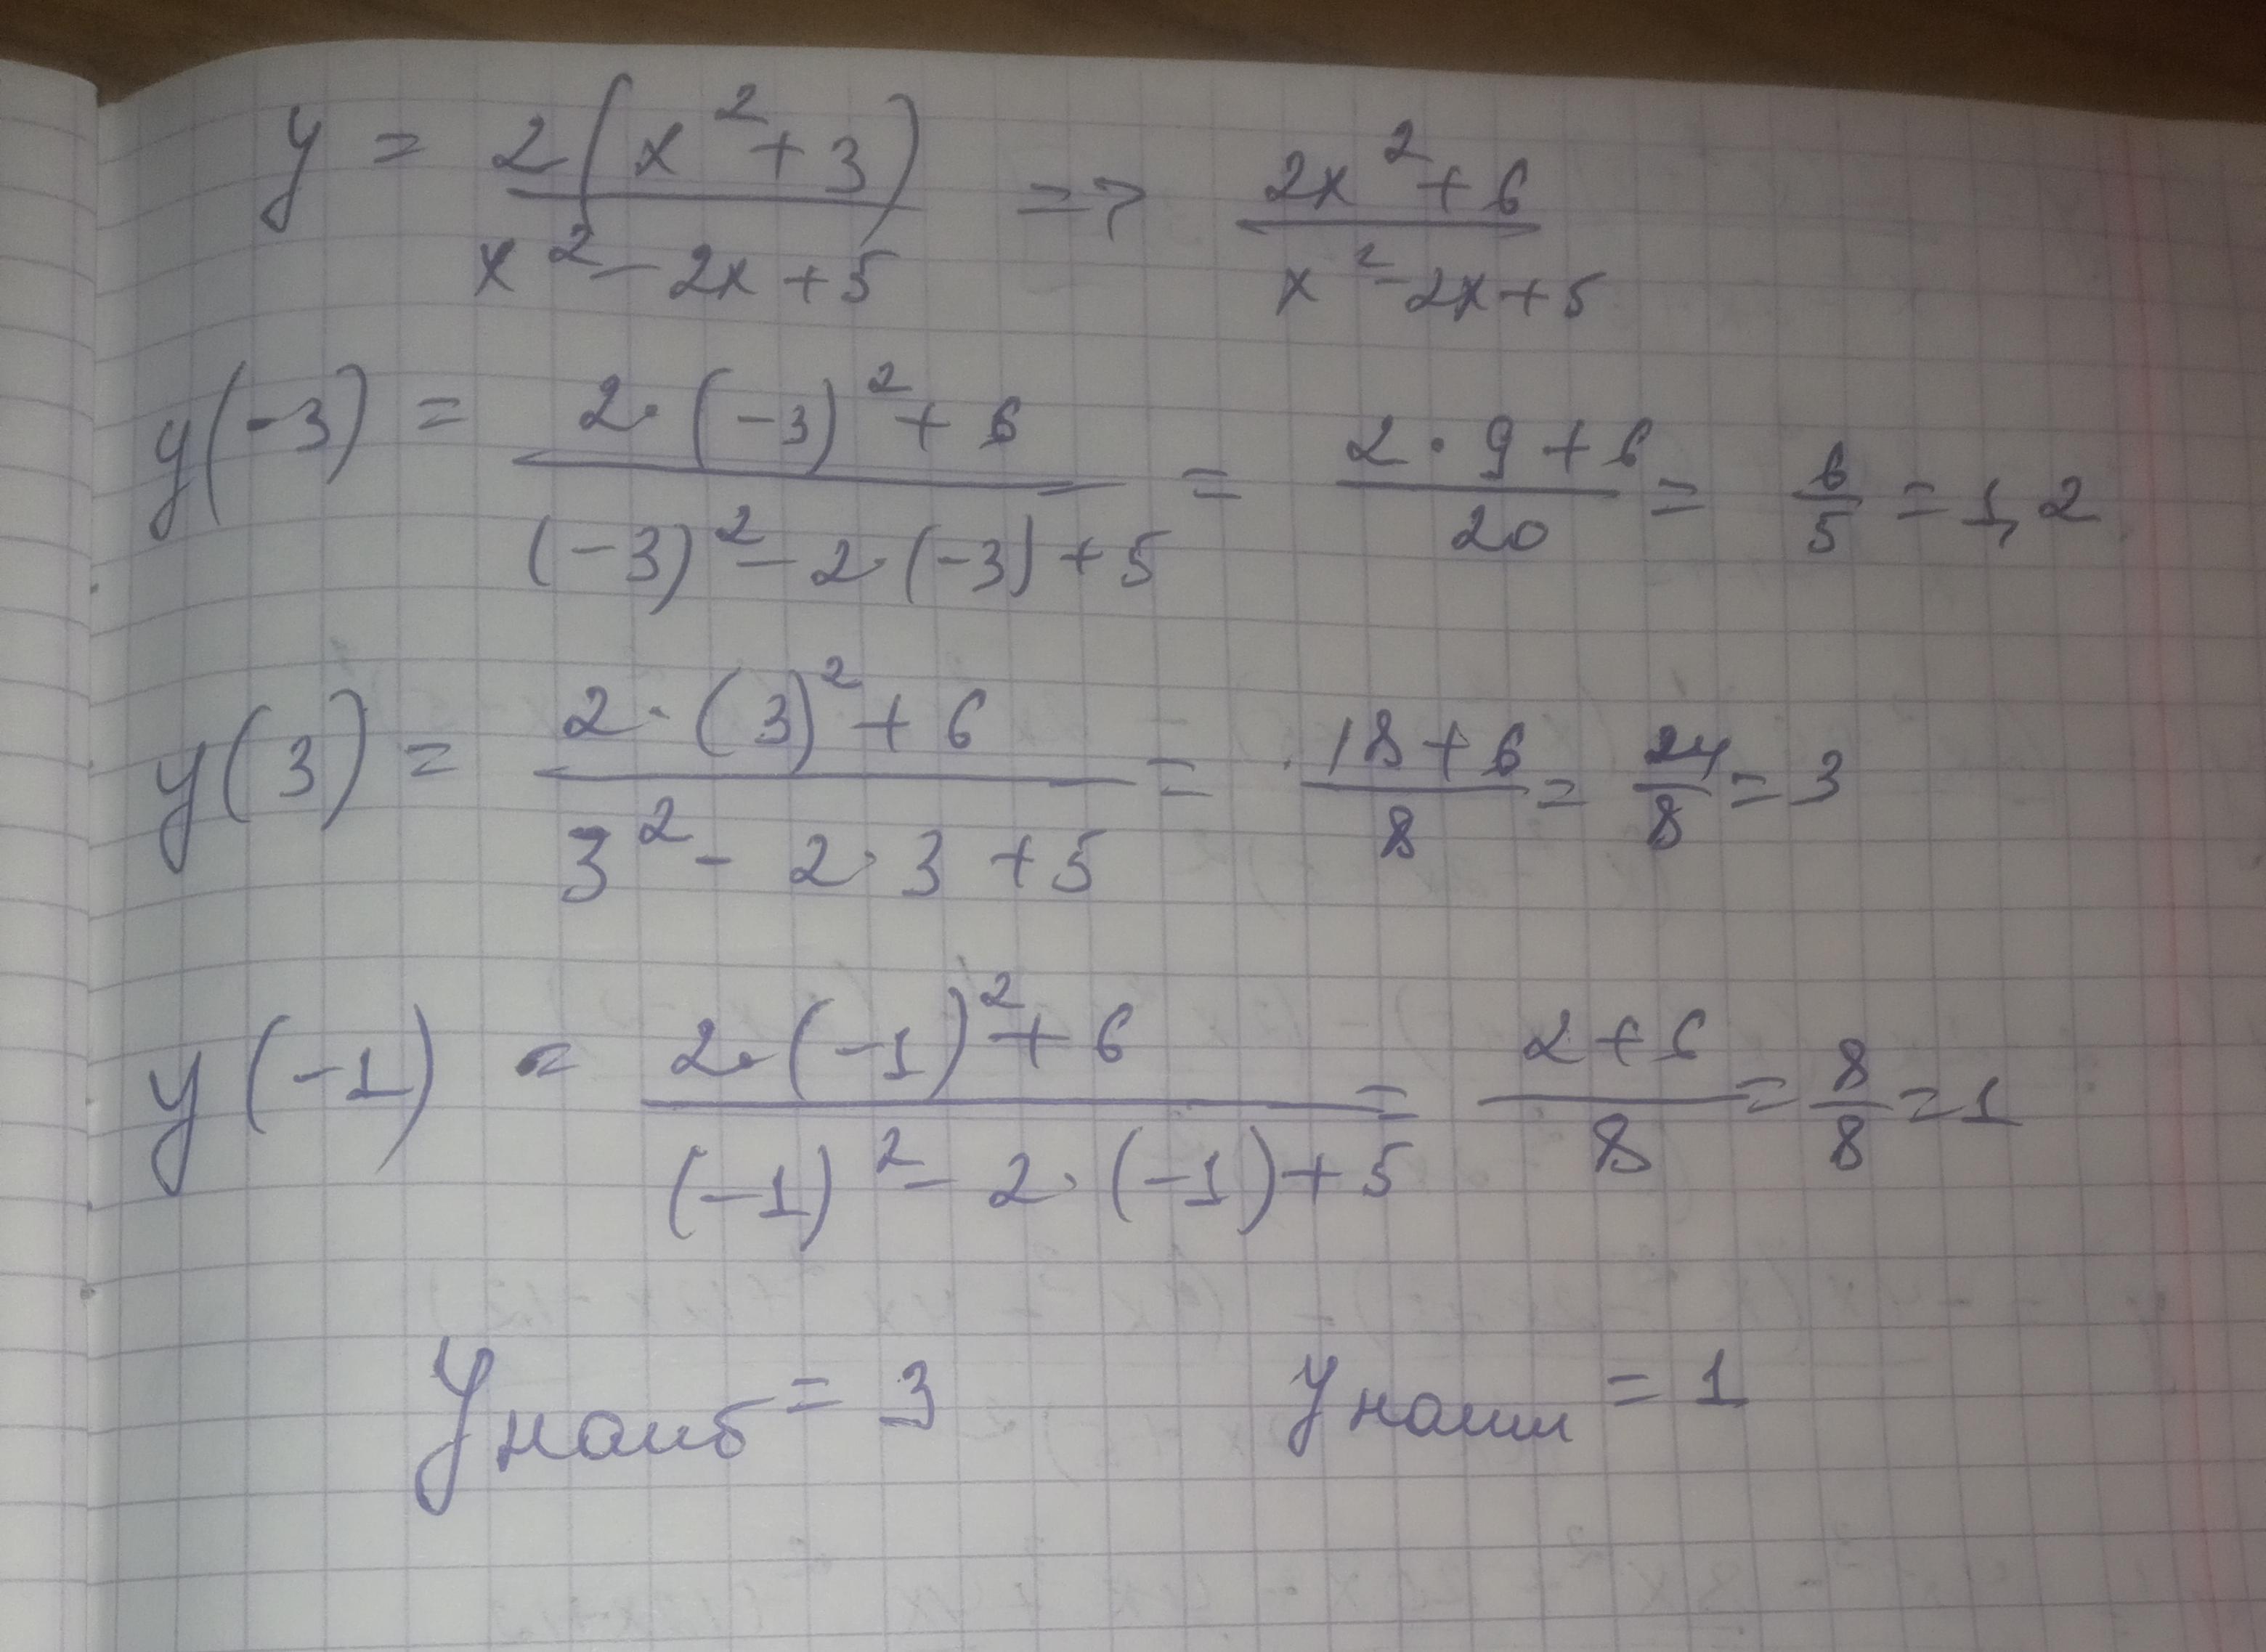 y = 2(x² + 3) / x² - 2x + 5 => 2x² + 6 / x² - 2x + 5
y(-3) = 2·(-3)² + 6 / (-3)² - 2·(-3) + 5 = 2·9 + 6 / 20 = 6/5 = 1,2
y(3) = 2·(3)² + 6 / 3² - 2·3 + 5 = 18 + 6 / 8 = 24/8 = 3
y(-1) = 2·(-1)² + 6 / (-1)² - 2·(-1) + 5 = 2 + 6 / 8 = 8/8 = 1
y наиб = 3 y наим = 1